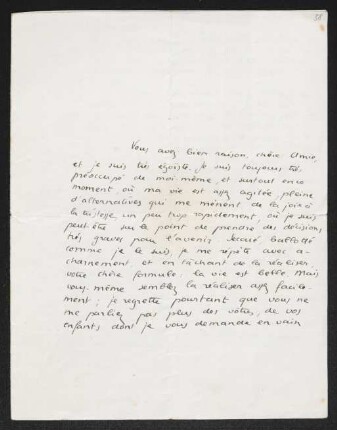 Vous avez bien raison, chère Amie,
et je suis très égoïste. Je suis toujours très
préoccupé de moi-même, et surtout en ce
moment où ma vie est assez agitée, pleine
d'alternatives qui me mènent de la joie à
la tristesse un peu trop rapidement, où je suis
peut être sur le point de prendre des décisions
très graves pour l'avenir. Secoué, ballotté
comme je le suis, je me répète avec a-
charnement et en tâchant de la réaliser
votre chère formule: la vie est belle. Mais
vous-même semblez la réaliser assez facile-
ment; je regrette pourtant que vous ne
me parliez pas plus des vôtres, de vos
enfants dont je vous demande en vain